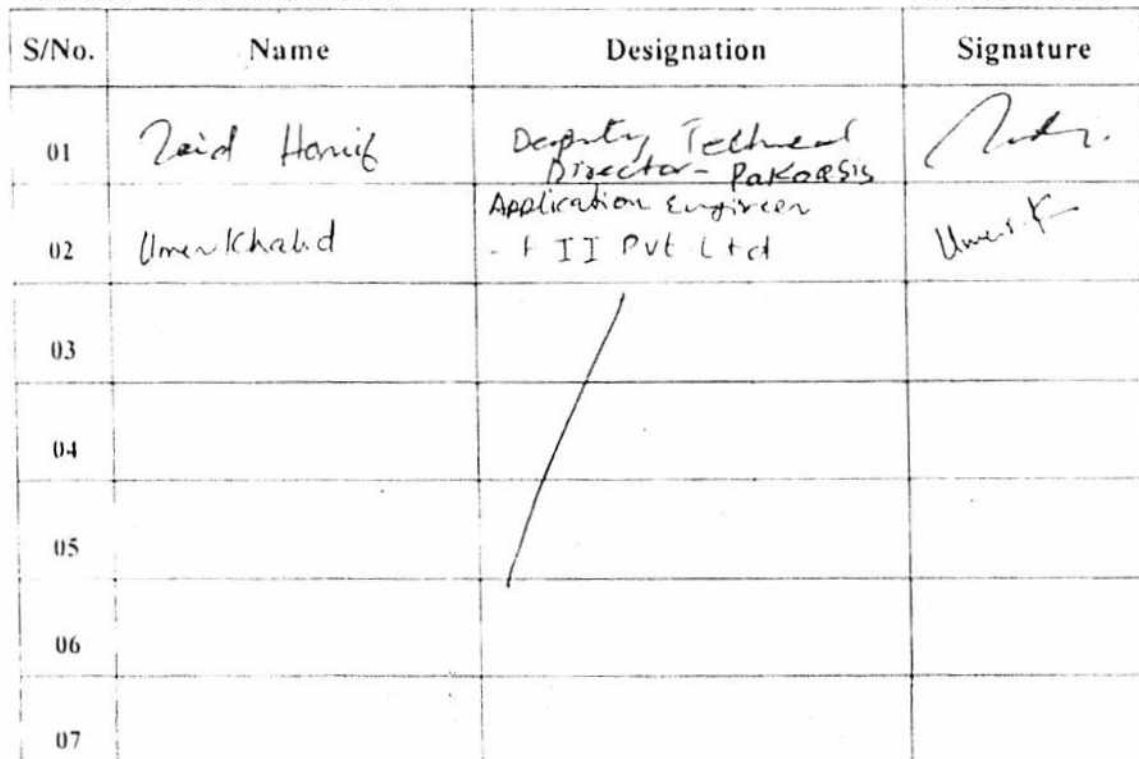 S/No. Name Designation Signature
01 Zaid Hanif Deputy Technical
Director - Pakoasis
Application Engineer
02 Umer Khalid - II Pvt Ltd Umer K
03
04
05
06
07